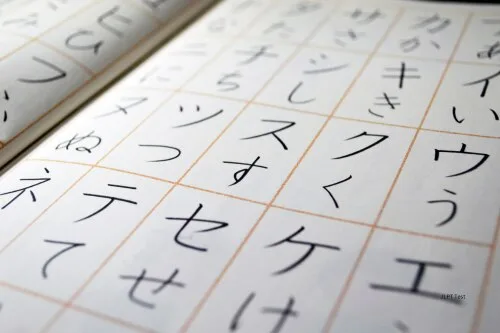 あイいウうエ
カかキきクくケけ
サさシしスすセせ
たチちツつテて
ニにヌぬネ
ヒひフ
JLPT Test